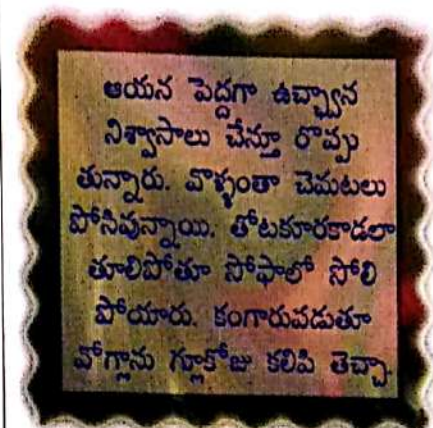 ఆయన పెద్దగా ఉచ్ఛ్వాన
నిశ్వాసాలు చేస్తూ రొప్పు
తున్నారు. వొళ్ళంతా చెమటలు
పోసివున్నాయి. తోటకూరకాడలా
తూలిపోతూ సోఫాలో సోలి
పోయారు. కంగారుపడుతూ
వోగ్లాను గ్లూకోజు కలిపి తెచ్చా.